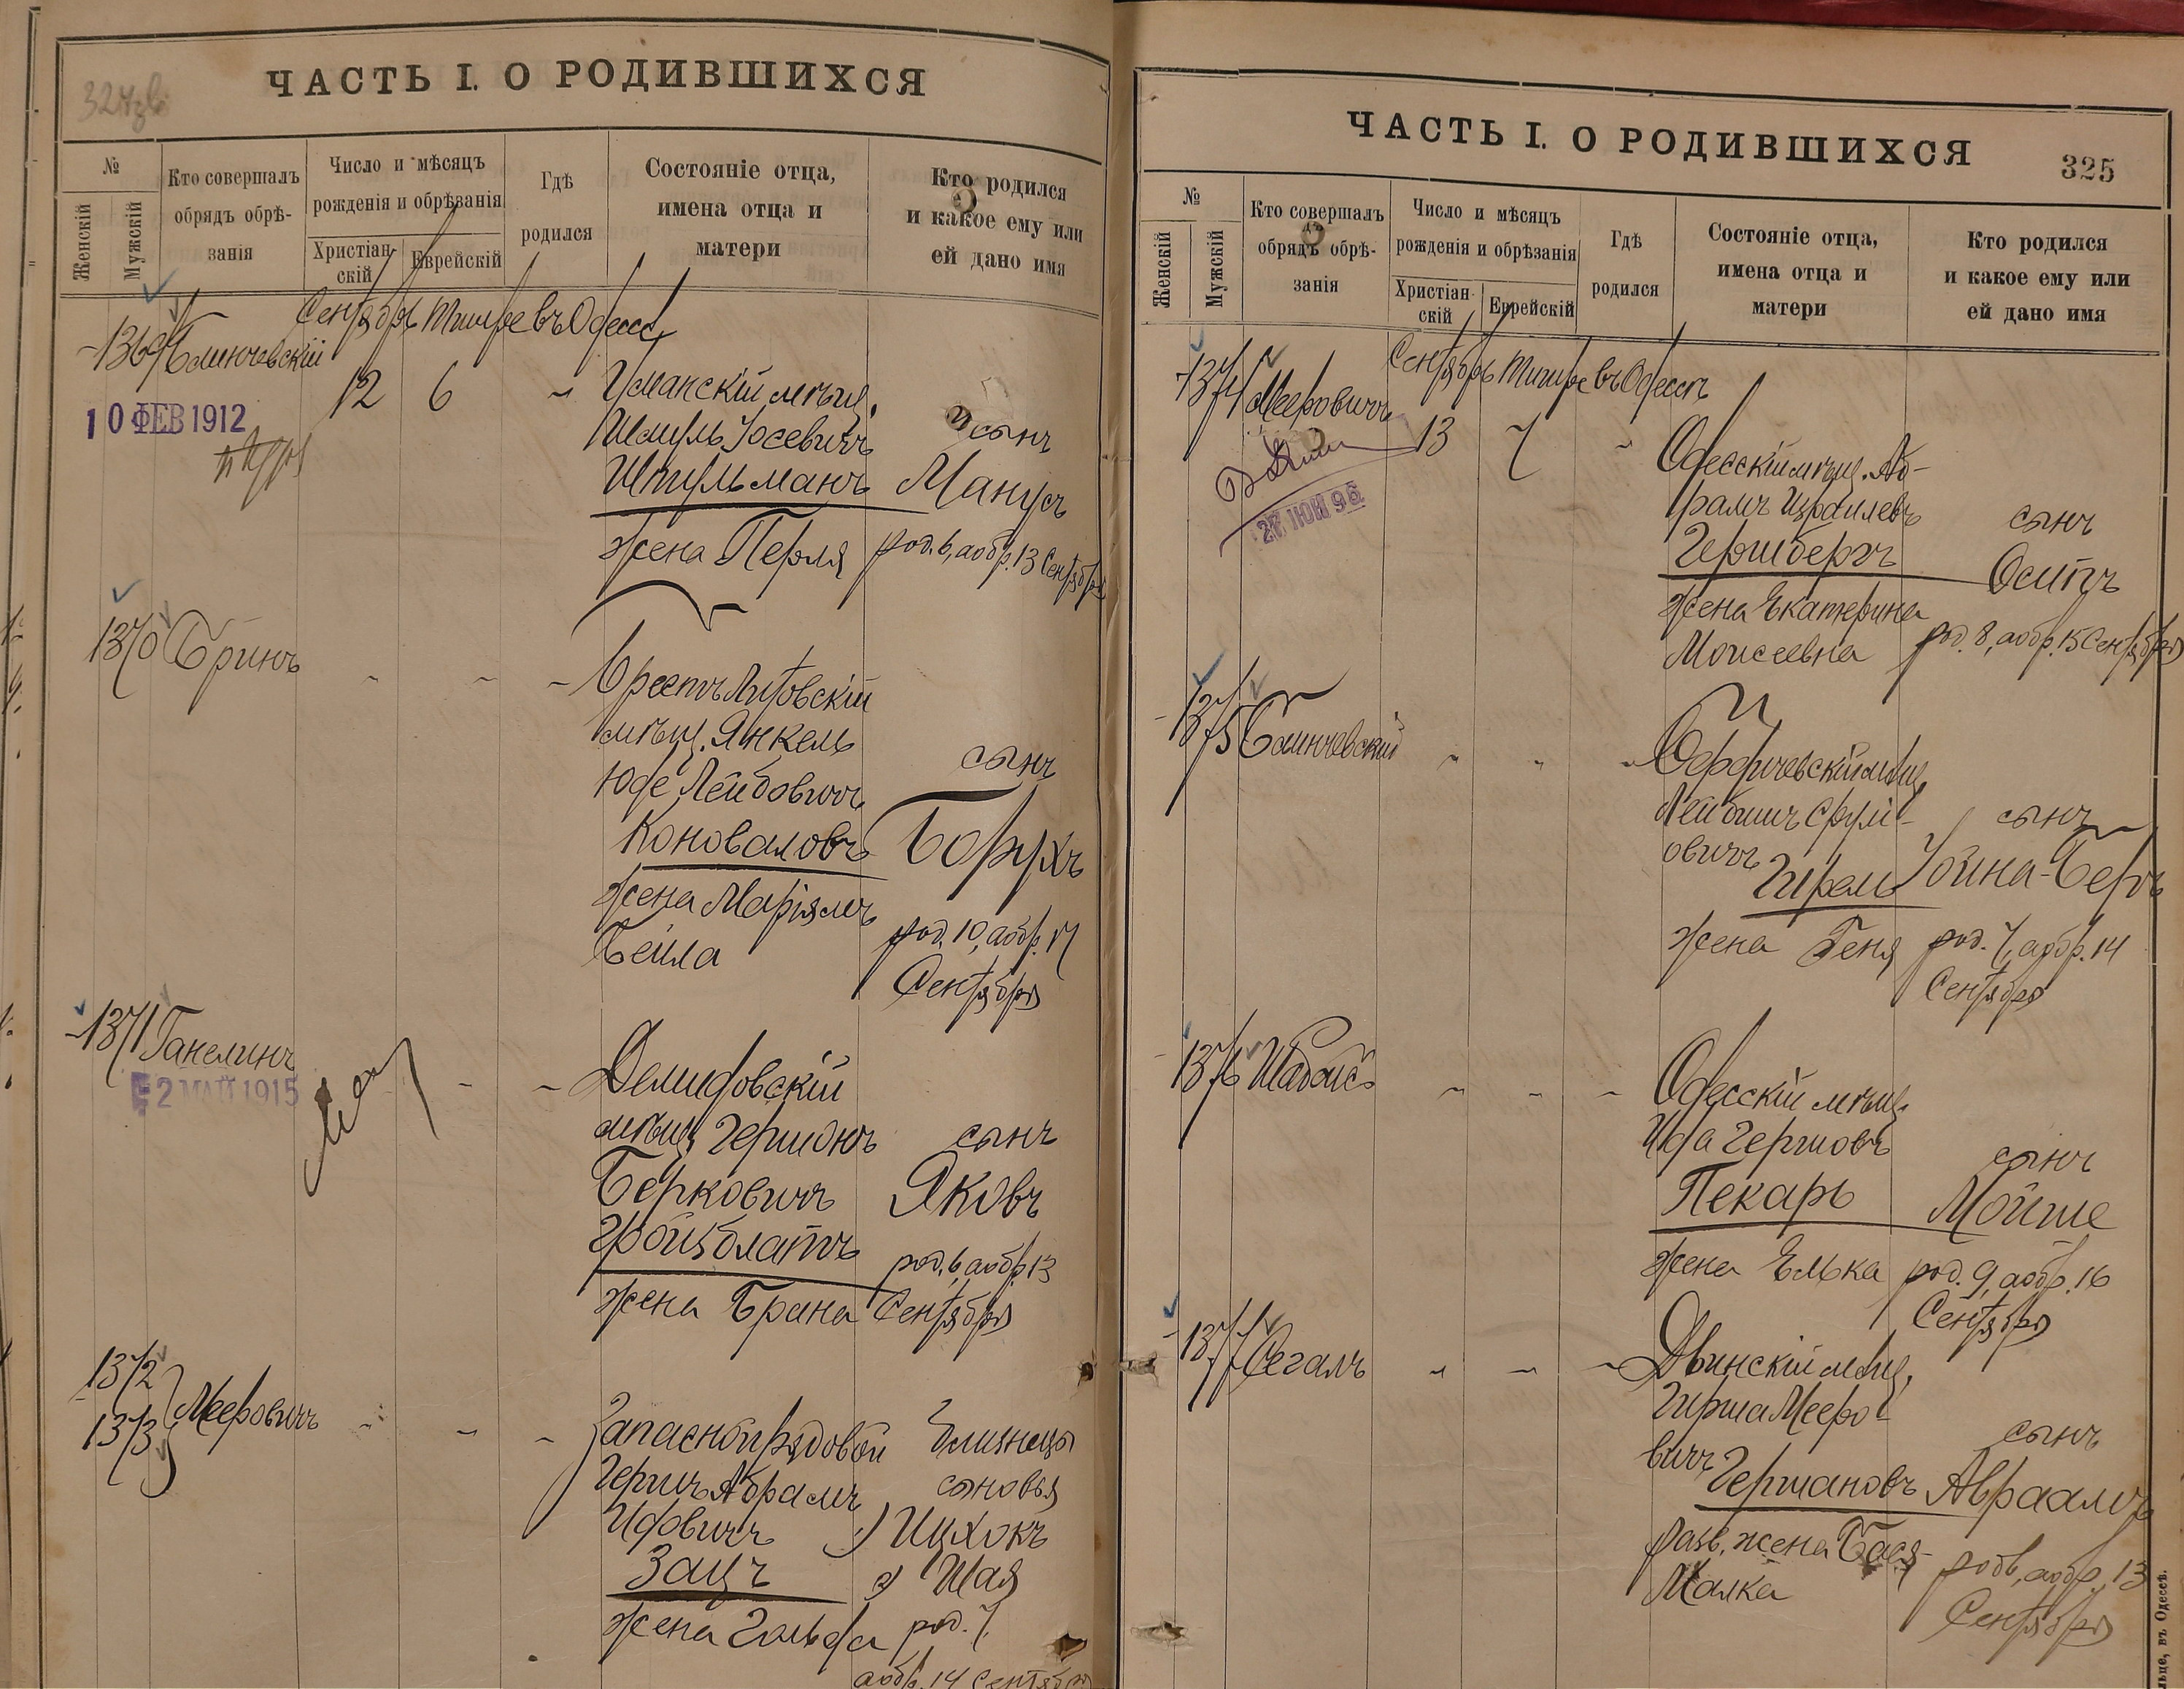 ЧАСТЬ I. О РОДИВШИХСЯ
№
Женскій
Мужскій
Кто совершалъ
обрядъ обрѣ-
занія
Число и мѣсяцъ
рожденія и обрѣзанія
Христіан-
скій
Еврейскій
Гдѣ
родился
Состояніе отца,
имена отца и
матери
Кто родился
и какое ему или
ей дано имя
Сентябрь Тишре въ Одессѣ
1369 Блинчевскій
12 6 "
10 ФЕВ 1912
Уманскій мѣщ.
Шмуль Іосевичъ
Штульманъ
жена Перля
сынъ
Манусъ
род. 6, а обр. 13 Сентября
1370 Бринъ
" " "
Брестъ Литовскій
мѣщ. Янкель
Юде Лейбовичъ
Коноваловъ
жена Маріямъ
Бейла
сынъ
Борухъ
род. 10, а обр. 17
Сентября
1371 Ганелинъ
2 МАЙ 1915
" "
Демидовскій
мѣщ. Гершонъ
Берковичъ
Гройсблатъ
жена Брана
сынъ
Яковъ
род. 6, а обр. 13
Сентября
1372
1373 Мееровичъ
" " "
Запасной рядовой
Гершъ Абрамъ
Идовичъ
Зацъ
жена Гольда
близнецы
сыновья
1) Ицхокъ
2) Шая
род. 7,
а обр. 14 Сентября
ЧАСТЬ I. О РОДИВШИХСЯ
325
№
Женскій
Мужскій
Кто совершалъ
обрядъ обрѣ-
занія
Число и мѣсяцъ
рожденія и обрѣзанія
Христіан-
скій
Еврейскій
Гдѣ
родился
Состояніе отца,
имена отца и
матери
Кто родился
и какое ему или
ей дано имя
Сентябрь Тишре въ Одессѣ
1374 Мееровичъ
13 7 "
27 ІЮН 96
Одесскій мѣщ. Аб-
рамъ Израилевъ
Гершбергъ
жена Екатерина
Моисеевна
сынъ
Осипъ
род. 8, а обр. 15 Сентября
1375 Блинчевскій
" " "
Лейбишъ Срули-
овичъ
жена Геня
сынъ
Іойна-Беръ
род. 7, а обр. 14
Сентября
1376 Шабаисъ
" " "
Одесскій мѣщ.
Ида Гершовъ
Пекарь
жена Елька
сынъ
Мойше
род. 9, а обр. 16
Сентября
1377 Сегалъ
" " "
Двинскій мѣщ.
Гирша Мееро-
вичъ
Германовъ
разв. жена Бася-
Малка
сынъ
Авраамъ
род 6, а обр. 13
Сентября
въ Одессѣ.